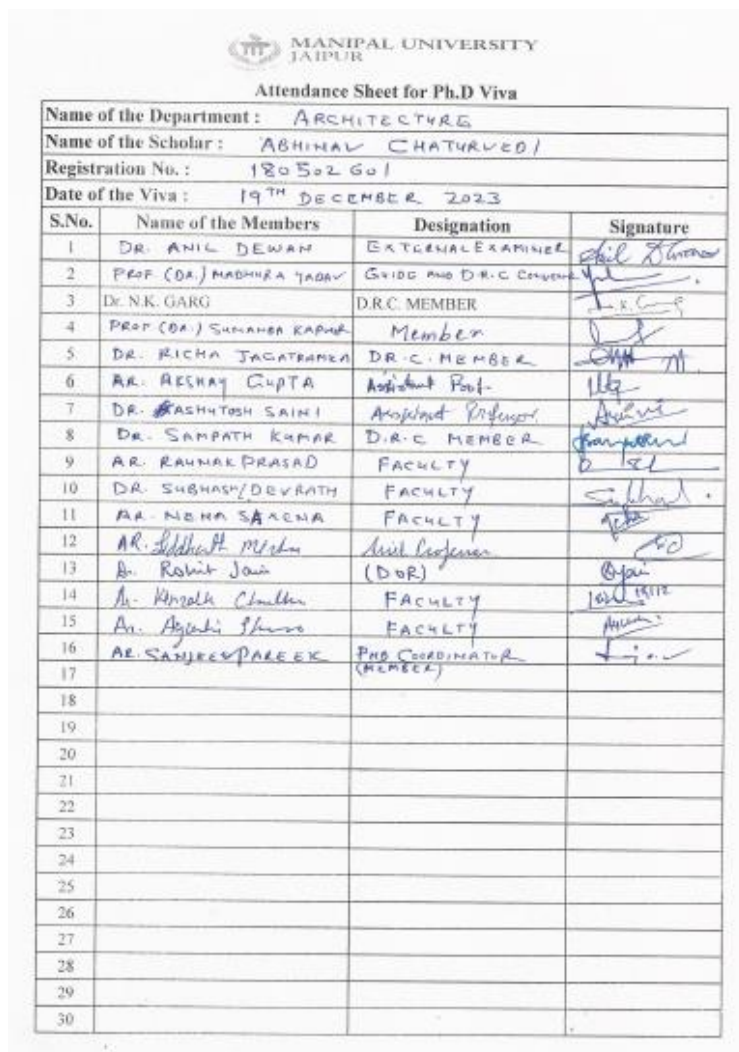 MANIPAL UNIVERSITY
JAIPUR
Attendance Sheet for Ph.D Viva
Name of the Department : ARCHITECTURE
Name of the Scholar : ABHINAV CHATURVEDI
Registration No. : 180502601
Date of the Viva : 19TH DECEMBER 2023
S.No. Name of the Members Designation Signature
1 DR. ANIL DEWAN EXTERNAL EXAMINER Anil Dewan
2 PROF (DR.) MADHURA YADAV GUIDE AND D.R.C CONVENER
3 Dr. N.K. GARG D.R.C. MEMBER
4 PROF (DR.) KAPUR Member
5 DR. RICHA JAGATRAMKA DR.C. MEMBER
6 AR. AKSHAY GUPTA Assistant Prof.
7 DR. ASHUTOSH SAINI Assistant Professor
8 DR. SAMPATH KUMAR D.R.C MEMBER
9 AR. RAUNAK PRASAD FACULTY
10 DR. SUBHASH DEVRATH FACULTY Subhash
11 AR. NEHA SAXENA FACULTY Neha
12 AR. Siddharth
13 Dr. Rohit Jain (DOR)
14 FACULTY 19/12
15 FACULTY
16 AR. SANJEEV PAREEK PHD COORDINATOR
17 (MEMBER)
18
19
20
21
22
23
24
25
26
27
28
29
30